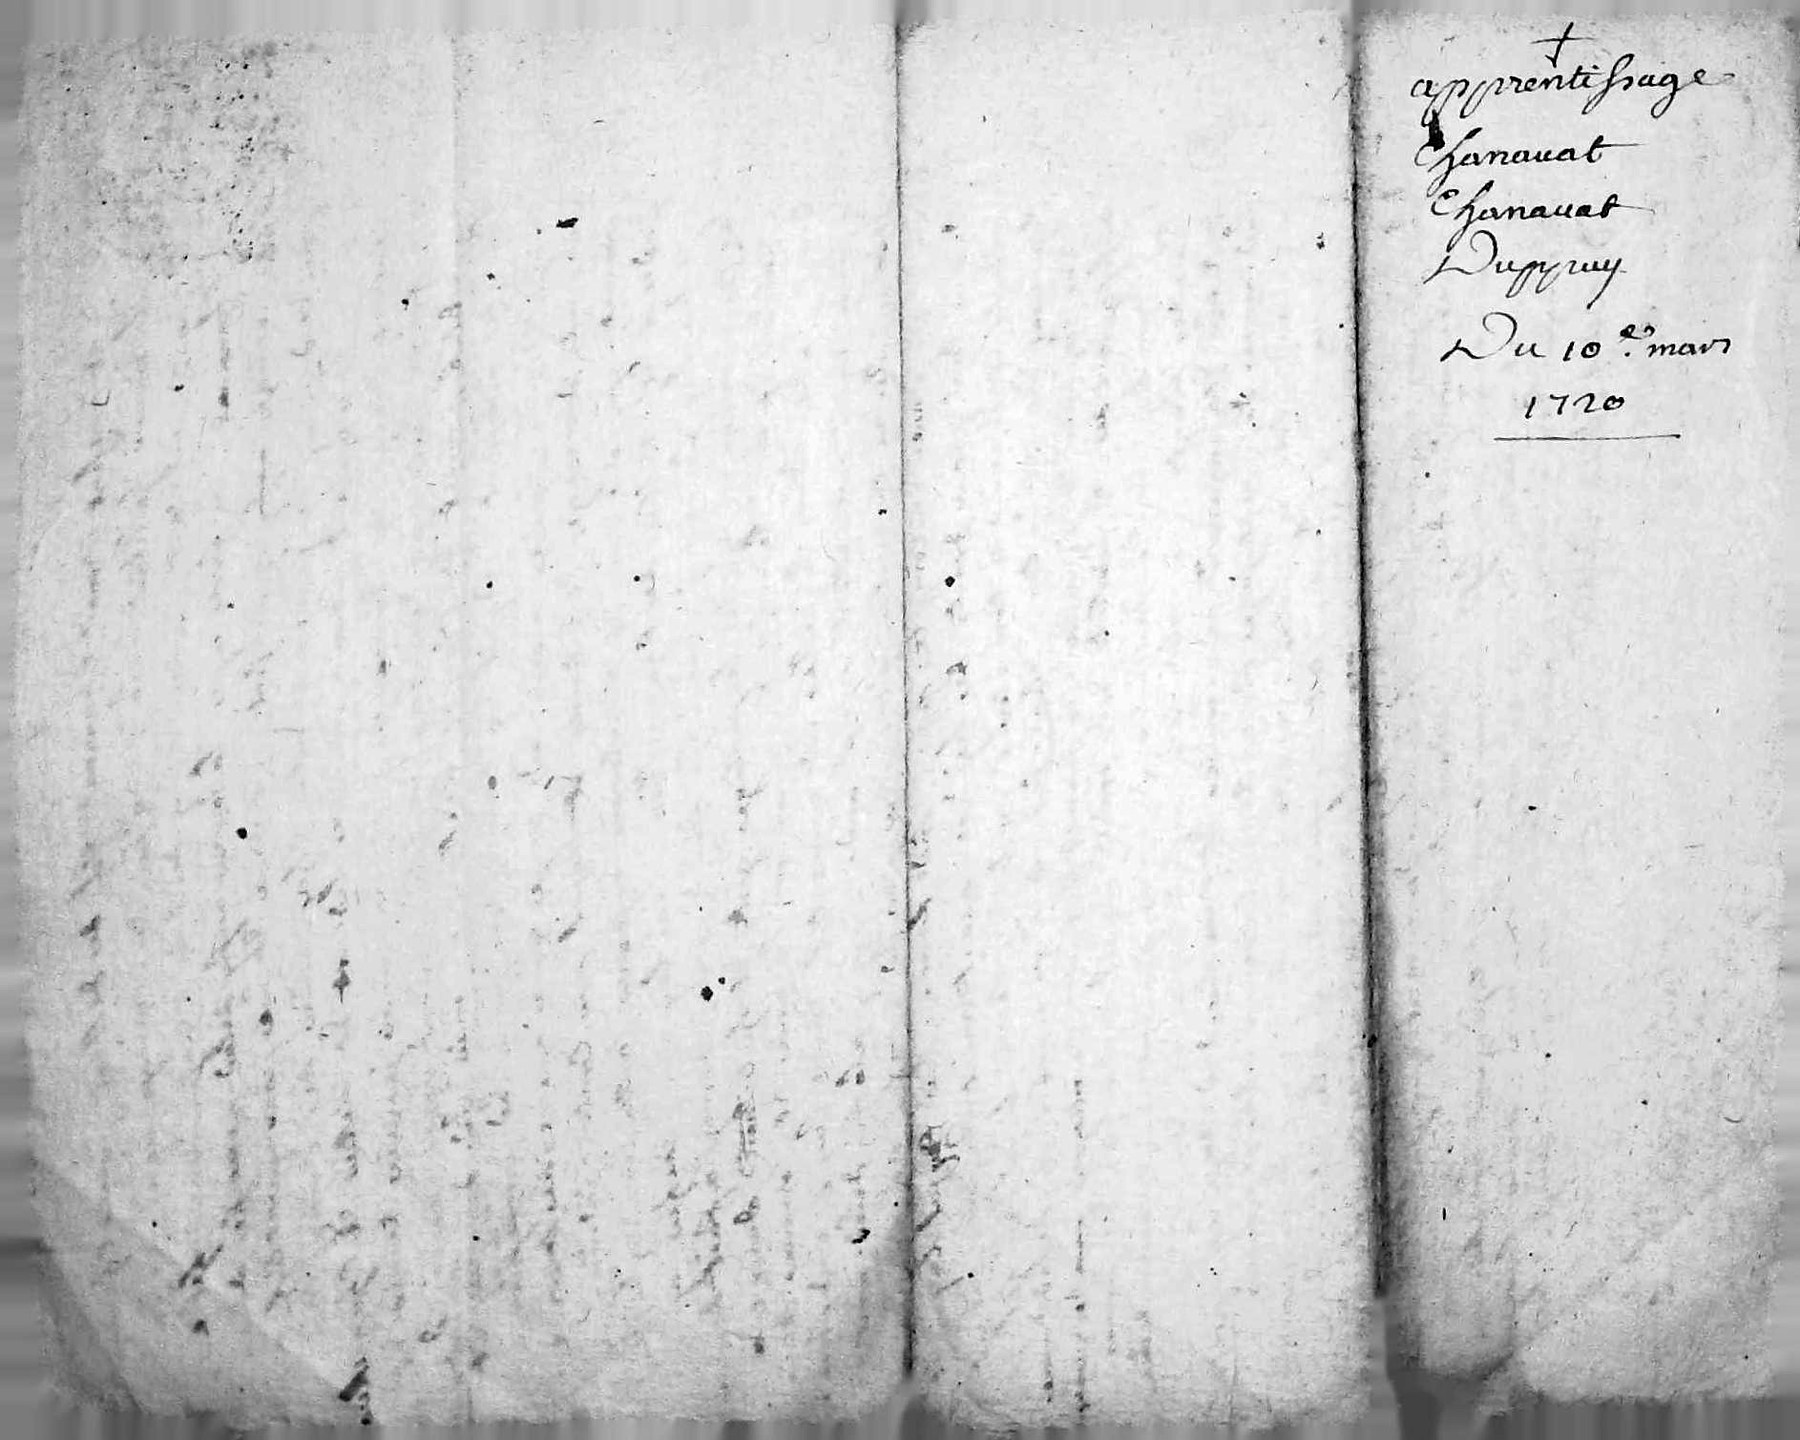 apprentissage
Chanauat
Chanauat
Duppuy
Du 10e. mars
1720